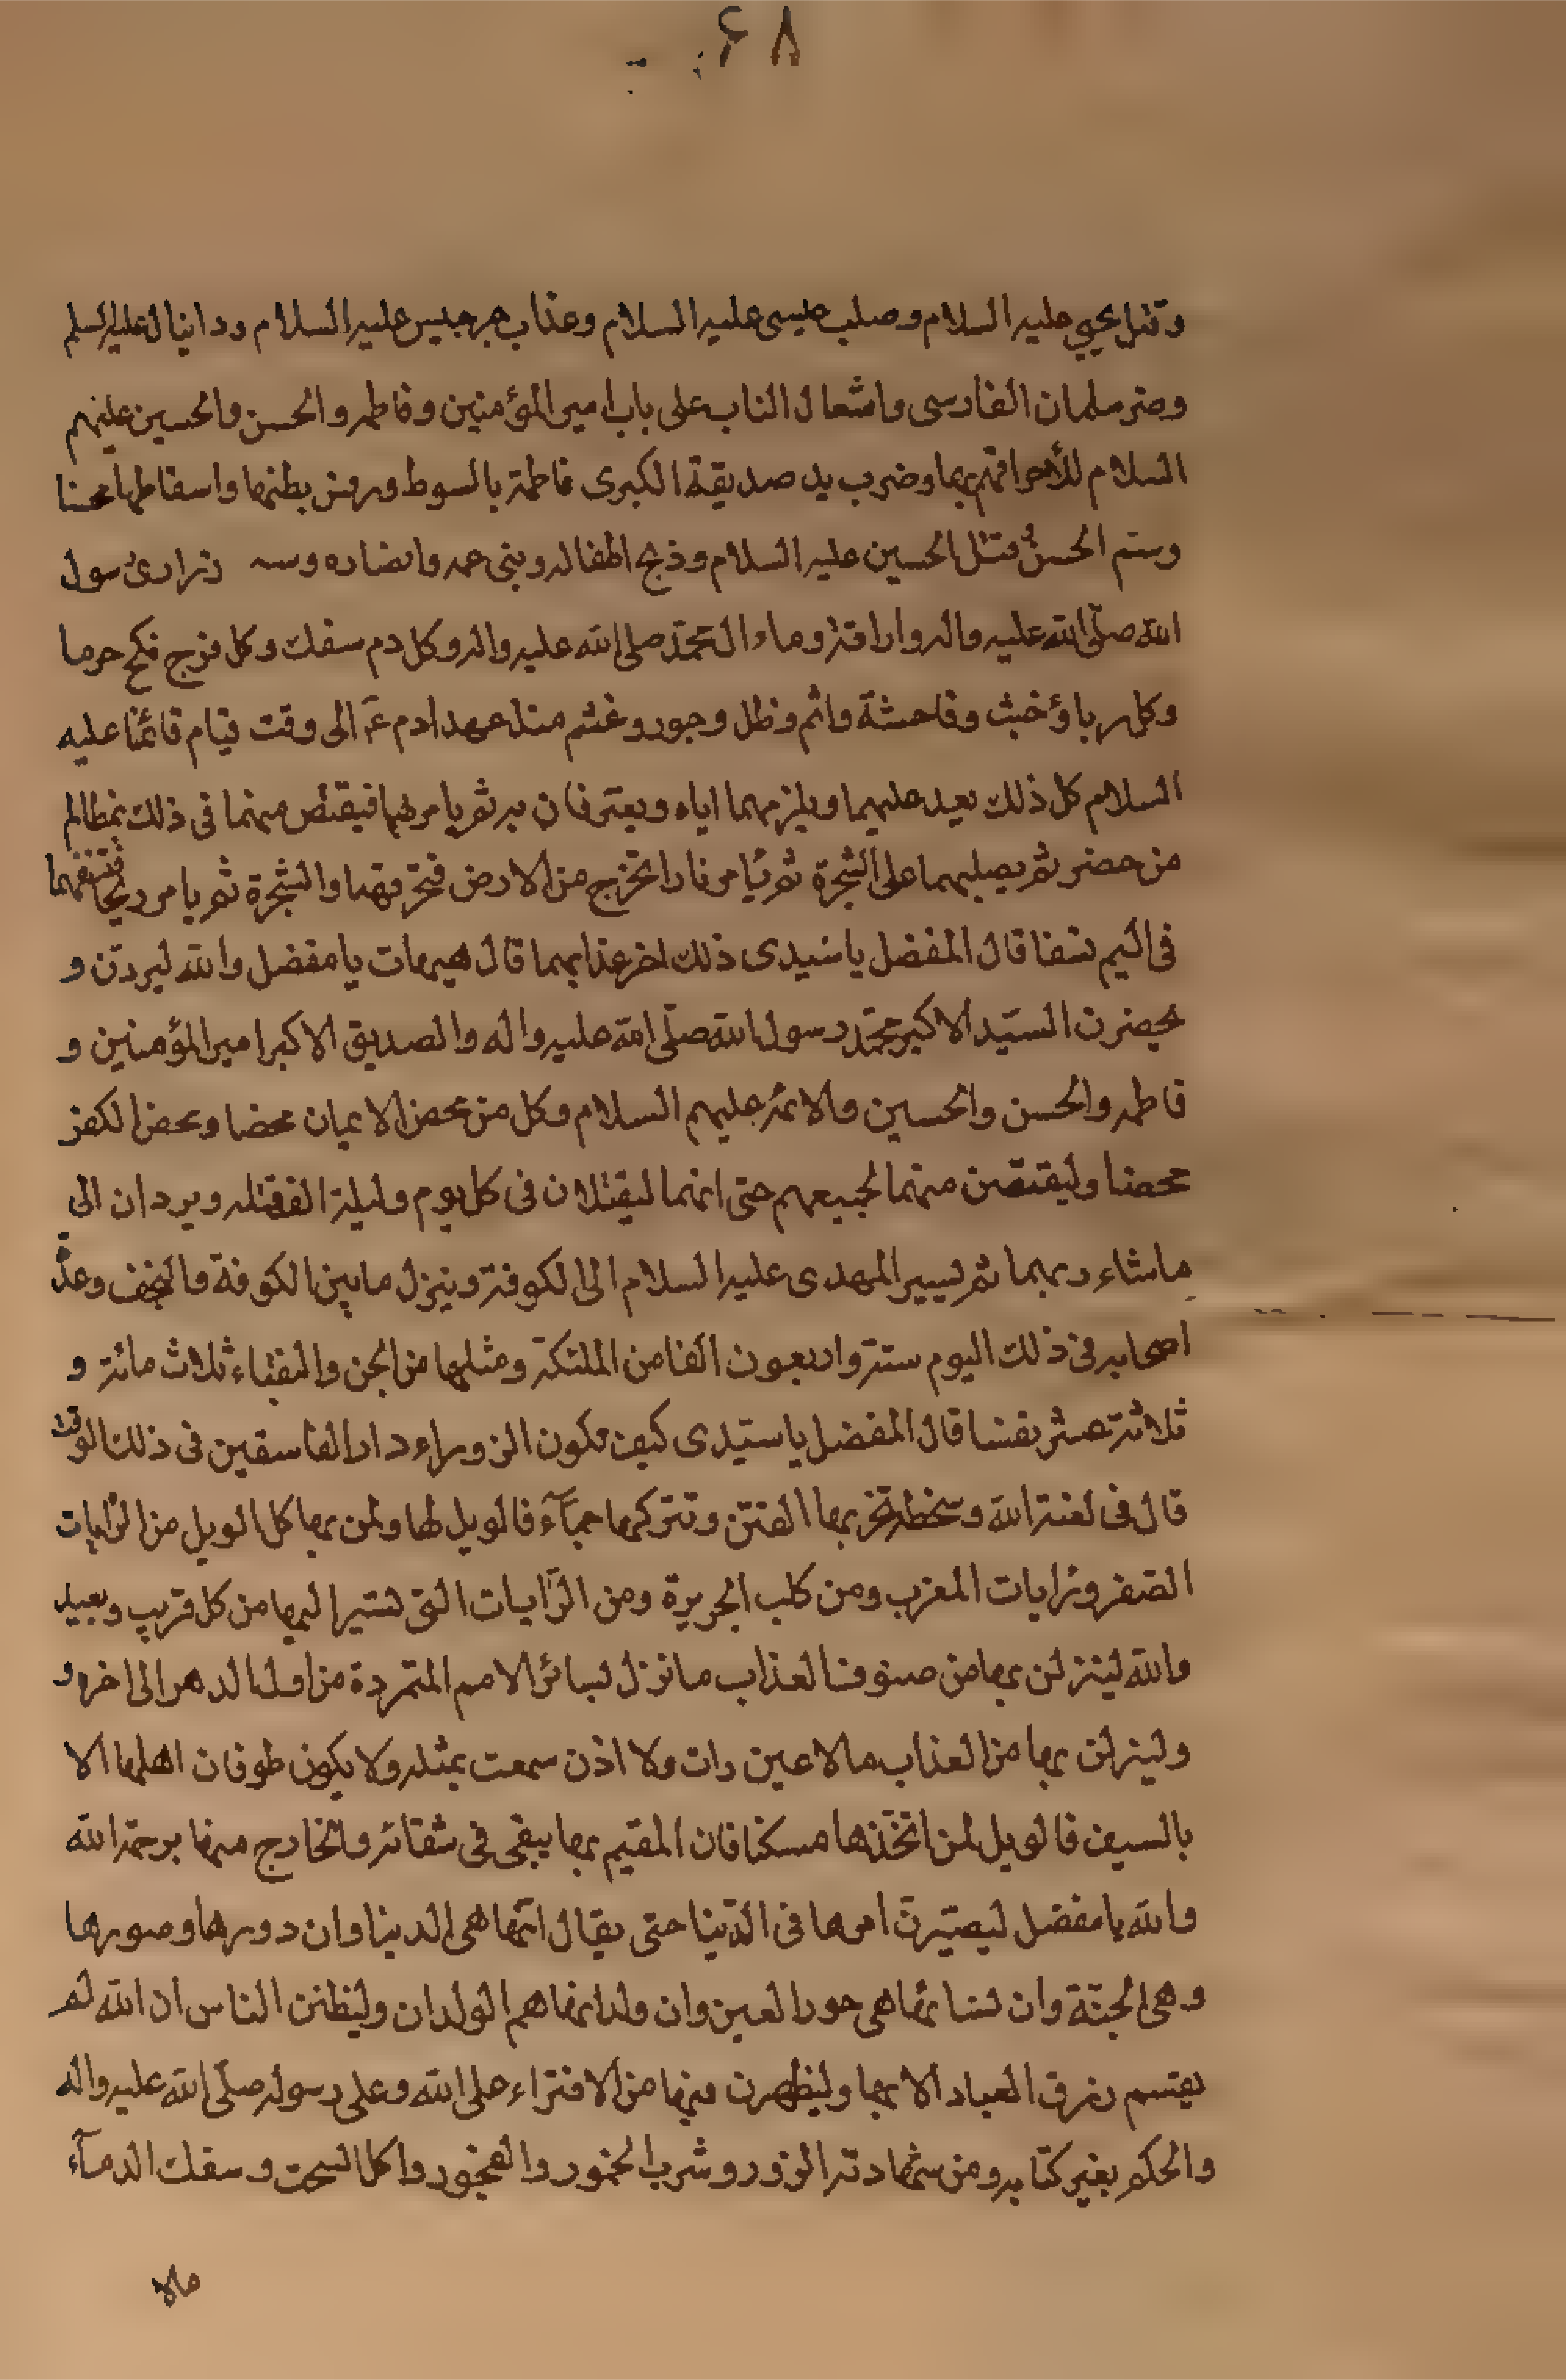 ٦٨
وقتل يحيى عليه السلام وصلب عيسى عليه السلام وعذاب جرجيس عليه السلام ودانيال عليه السلم
وضر سلمان الفارسى واشعال الناب على باب امير المؤمنين وفاطمه والحسن والحسين عليهم
السلام للأحراقهم بها وضرب يد صديقة الكبرى فاطمة بالسوط ورفس بطنها واسقاطها محسنا
وسم الحسن وقتل الحسين عليه السلام وذبح اطفاله وبنى عمه وانصاره وسبـ ذرارى رسول
الله صلّى الله عليه واله واراقة دماء ال محمّد صلى الله عليه واله وكل دم سفك وكل فرج نكح حرما
وكل رباؤ خبث وفاحشة واثم وظلم وجور وغشم منذ عهد ادم عم الى وقت قيام قائمنا عليه
السلام كل ذلك يعيد عليهما ويلزمهما اياه ويعترفان به ثم يامر بهما فيقتص منهما فى ذلك بمظالم
من حضر ثم يصلبهما على الشجرة ثم يامر نارا تخرج من الارض فتحرقهما والشجرة ثم يامر ريحا فتنسفهما
فى اليم نسفا قال المفضل يا سيدى ذلك اخر عذابهما قال هيهات يا مفضل والله ليردن و
يحضرن السيّد الاكبر محمّد رسول الله صلّى الله عليه واله والصديق الاكبر امير المؤمنين و
فاطمه والحسن والحسين والائمه عليهم السلام وكل من محض الايمان محضا ومحض الكفر
محضا وليقتصن منهما لجميعهم حتى انهما ليقتلان فى كل يوم وليلة الف قتله ويردان الى
ماشاء ربهما ثم ليسير المهدى عليه السلام الى الكوفة وينزل ما بين الكوفة والنجف وعدّة
اصحابه فى ذلك اليوم ستة واربعون الفا من الملئكة ومثلها من الجن والنقباء ثلاث مائة و
ثلاثة عشر نفسا قال المفضل يا سيّدى كيف تكون الزوراء دار الفاسقين فى ذلك الوقت
قال فى لعنة الله وسخطه تخربها الفتن وتتركها جمآء فالويل لها ولمن بها كل الويل من الرّايات
الصفر ورايات المغرب ومن كلب الجريرة ومن الرّايات التى لتسير اليها من كل قريب وبعيد
والله لينزلن بها من صنوف العذاب ما نزل لسائر الامم المتمردة من اول الدهر الى اخره و
ولينزلن بها من العذاب ما لا عين رات ولا اذن سمعت بمثله ولا يكون طوفان اهلها الا
بالسيف فالويل لمن اتخذها مسكنا فان المقيم بها يبقى فى شقائه والخارج منها برحمة الله
والله يا مفضل ليصيّرن امرها فى الدّنيا حتى يقال انّها هى الدنيا وان دورها وصورها
وهى الجنّة وان لنسائها هى حور العين وان ولدانها هم الولدان وليظنن الناس ان الله لم
يقسم رزق العباد الا بها وليظهرن منها من الافتراء على الله وعلى رسوله صلّى الله عليه واله
والحكم بغير كتابه ومن شهادته الزور وشرب الخمور والفجور واكل السحت وسفك الدمآء
مالا